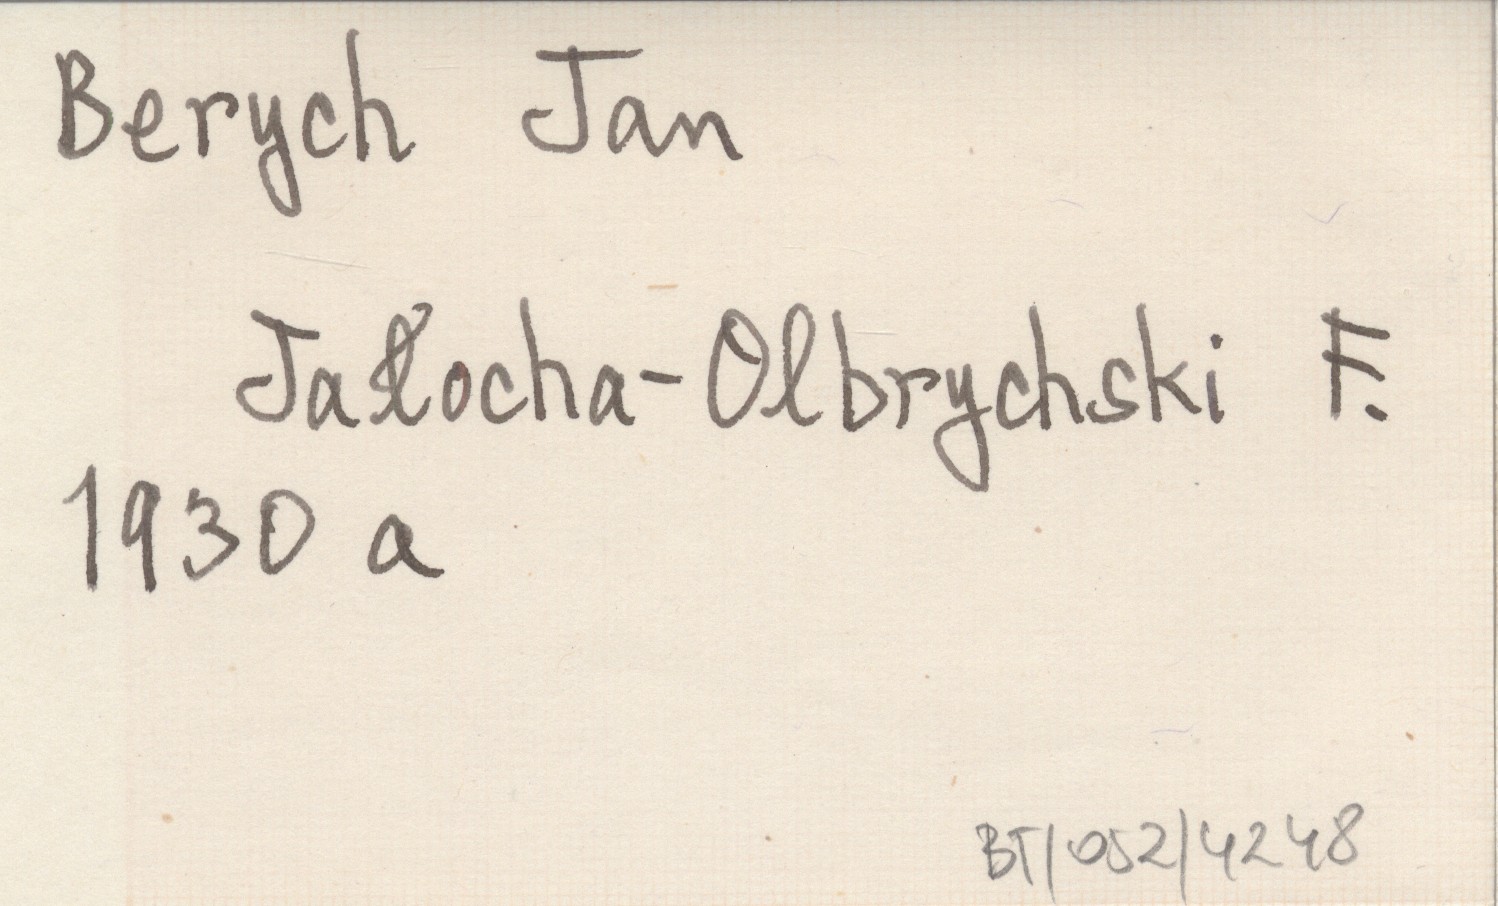 Berych Jan
Jałocha-Olbrychski F.
1930 a
BT/052/4248